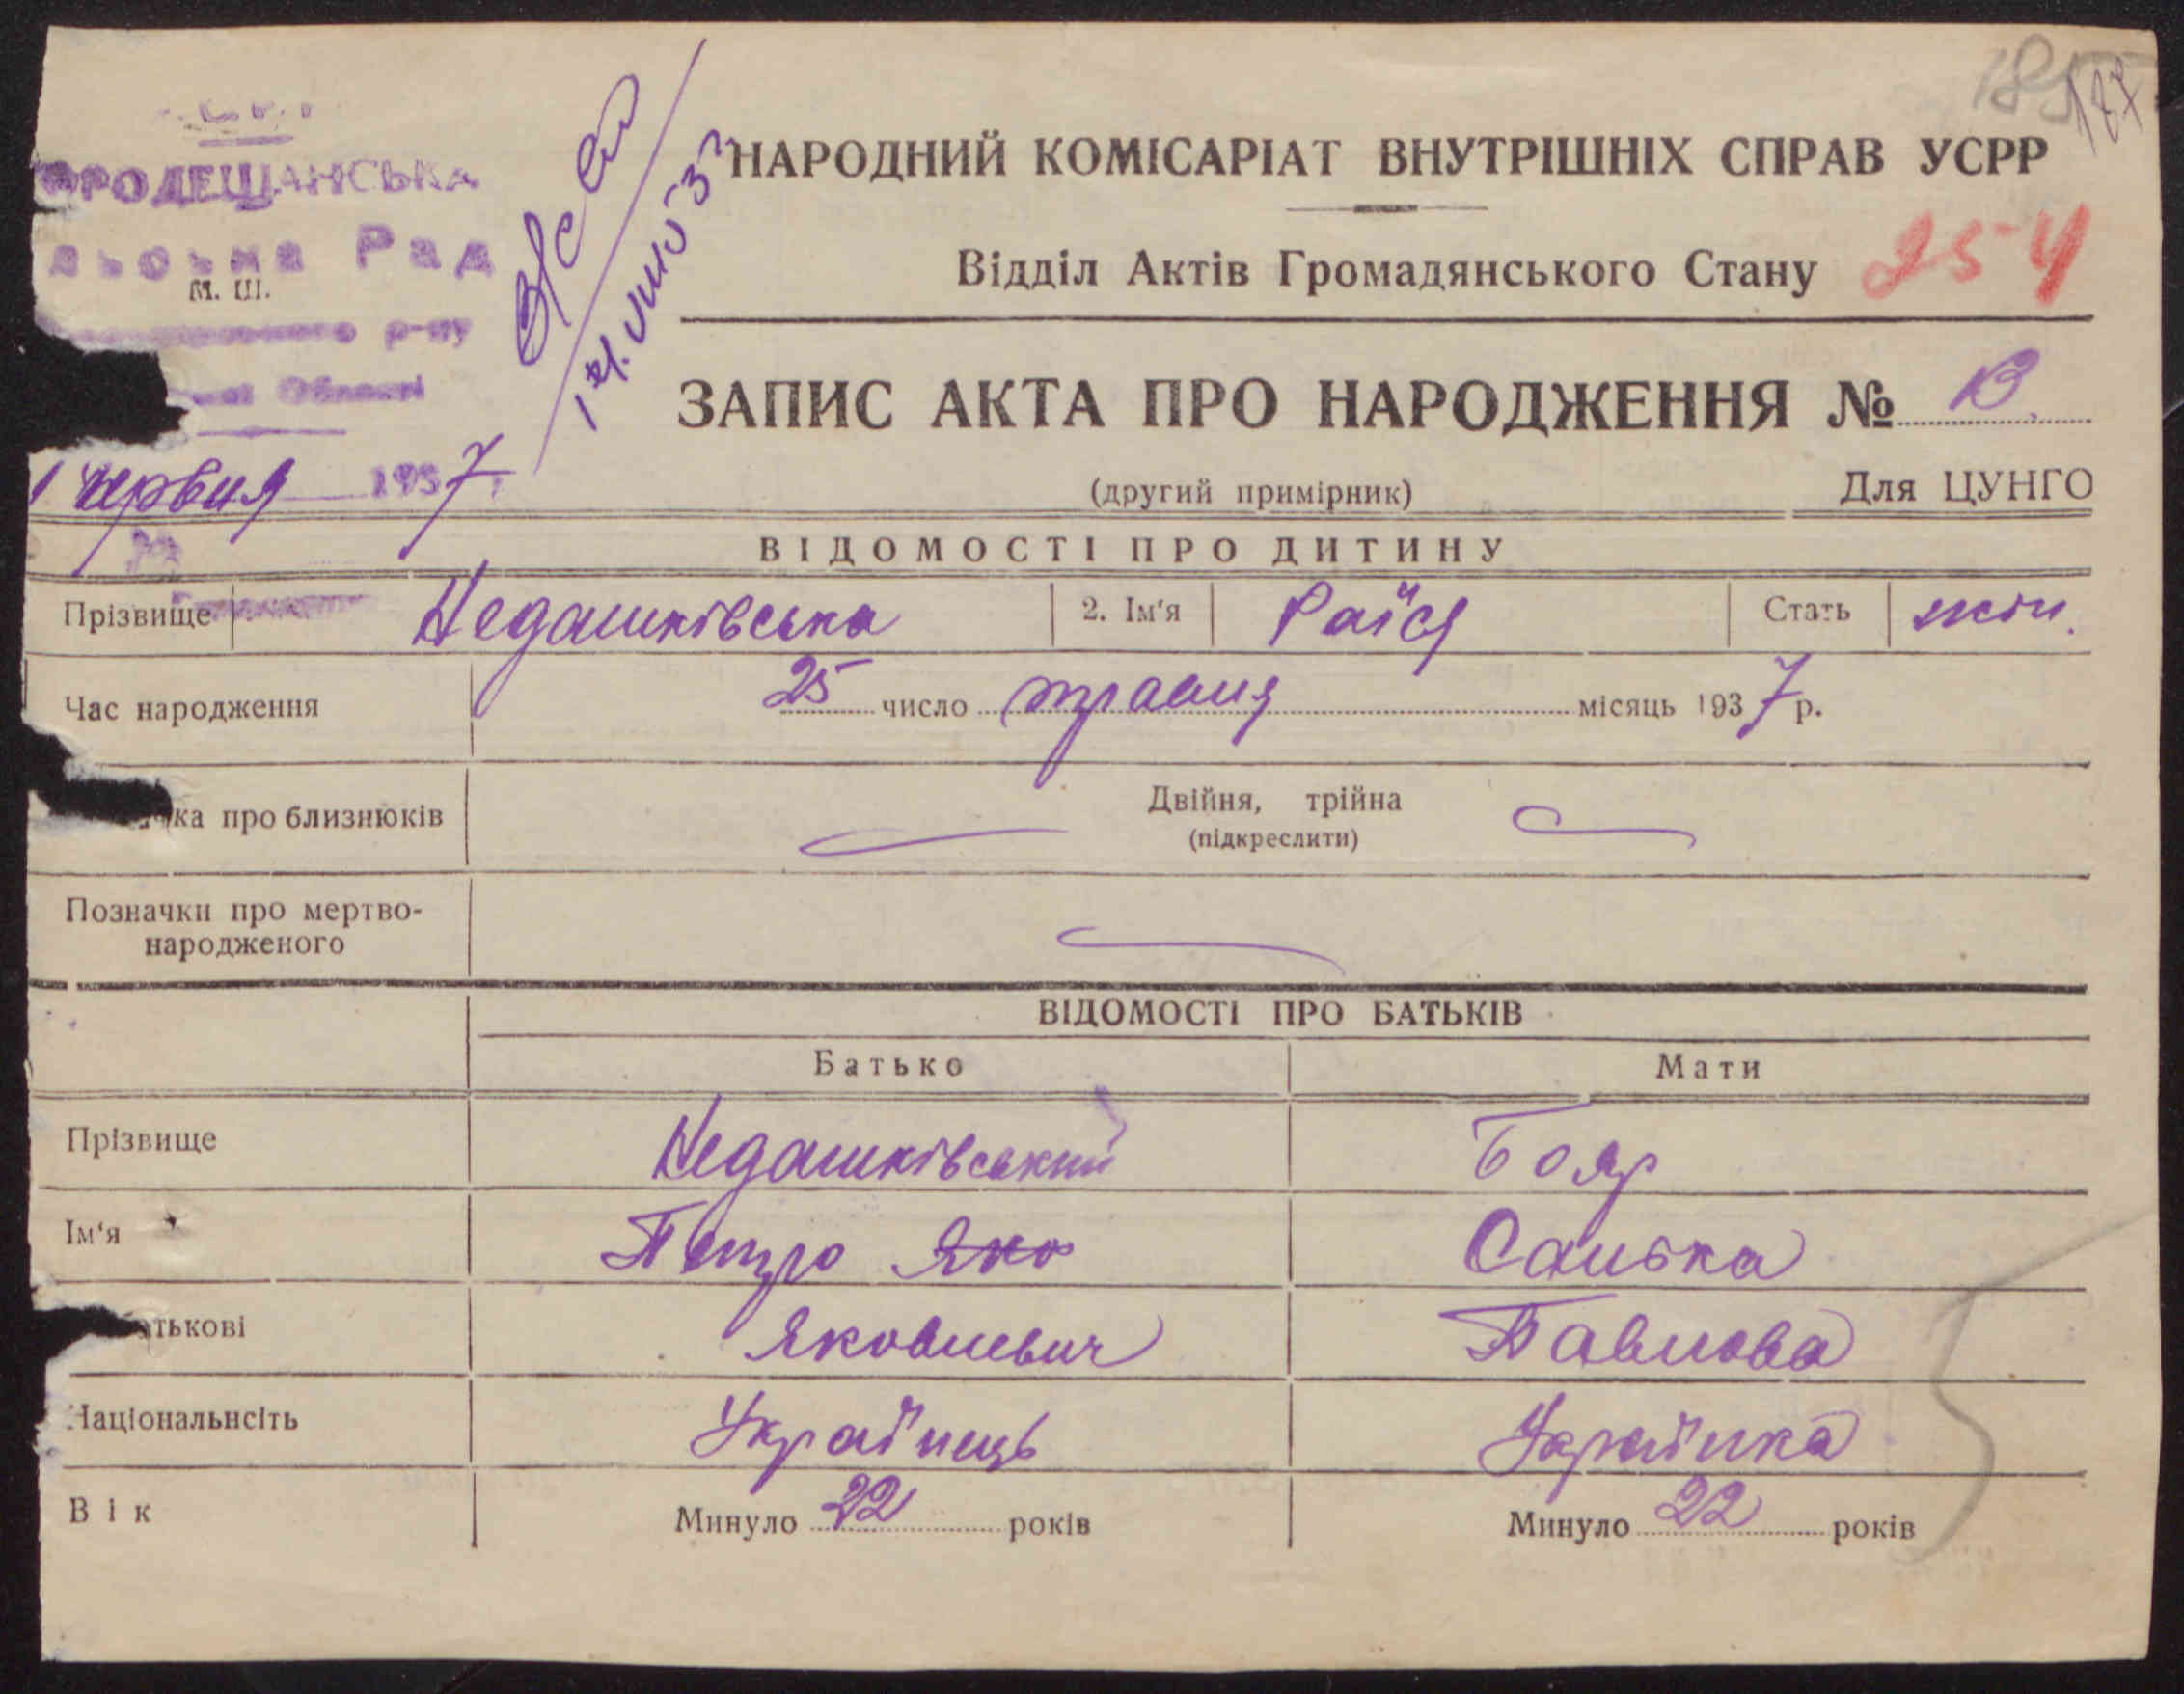 187
РОДЕЩАНСЬКА
Рад
М. Ш.
р-ну
Області
НАРОДНИЙ КОМІСАРІАТ ВНУТРІШНІХ СПРАВ УСРР
Відділ Актів Громадянського Стану
254
ЗАПИС АКТА ПРО НАРОДЖЕННЯ №
червня 1937
(другий примірник)
Для ЦУНГО
ВІДОМОСТІ ПРО ДИТИНУ
Прізвище Недашківська 2. Ім'я Раїся Стать жін.
Час народження 25 число травня місяць 1937 р.
ка про близнюків Двійня, трійна
(підкреслити)
Позначки про мертво-
народженого
ВІДОМОСТІ ПРО БАТЬКІВ
Батько Мати
Прізвище Недашківський Бояр
Ім'я Петро Яко Санька
тькові Яковлевич Павлова
Національнсіть Українець Українка
Вік Минуло 22 років Минуло 22 років